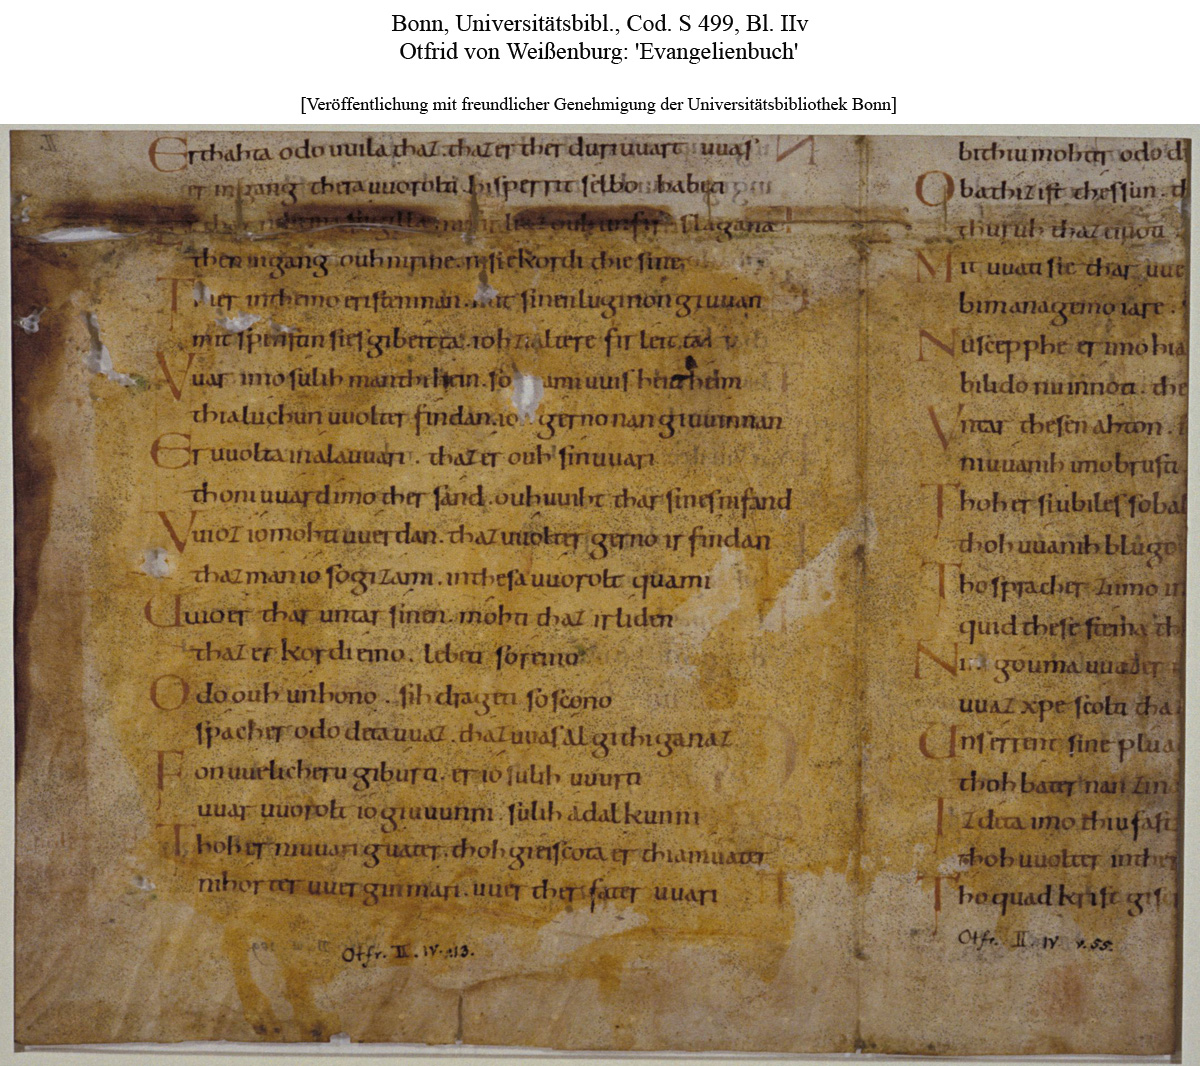 Bonn, Universitätsbibl., Cod. S 499, Bl. IIv
Otfrid von Weißenburg: 'Evangelienbuch'
[Veröffentlichung mit freundlicher Genehmigung der Universitätsbibliothek Bonn]
Er thahta odo uuila thaz. thaz er ther duriuuart uuas
er ingang thera uuorolti bisperrit selbo habeti
then ingang ouh ni rine. ni si ekordi thie sine
Ther inthemo eristen man. mit sinen luginon giuuan
mit spenstin sies gibeitta. ioh zi altere firleitta
Uuar imo sulih man thihein. so
thia luchun uuolter findan. io gerno nan giuuinnan
Er uuolta in alauuari. thaz er ouh sin uuari
thoni uuard imo ther sand. ouh uuiht thar sines ni fand
Vuioz io mohti uuerdan. thaz uuolter gerno irfindan
thaz man io so gizami. in thesa uuorolt quami
Uuio er thar untar sinen. mohti thaz irliden
thaz er kordi eino. lebeti so reino
Odo ouh unhono. sih drageti so scono
spacher odo deta uuaz. thaz uuas al githiganaz
Fon uuelicheru giburti. er io sulih uuurti
uuar uuorolt io giuuunni. sulih adalkunni
Thoh er ni uuari guater. thoh gieiscota er thia muater
ni horter uuergin mari. uuer ther fater uuari
Otfr. II. IV. v. 13.
bithiu mohter odo
Oba thiz ist thes sun.
thuruh thaz einoti
Mit uuatu sie thar
bi managemo iare.
Nu scepphe er imo hia
bilido nu in noti. the
Vntar thesen ahton.
ni uuanih imo brusti
Thoh er siubiles so bal
thoh uuanih blugo
Tho spracher zi imo in
quid these steina th
Nim gouma
uuaz xpe scolti tha
Unser rent sine plua
thoh bater nan zin
Iz deta imo thiu fasta
thoh uuolter in ther
Tho quad krist gisc
Otfr. II. IV v. 55.